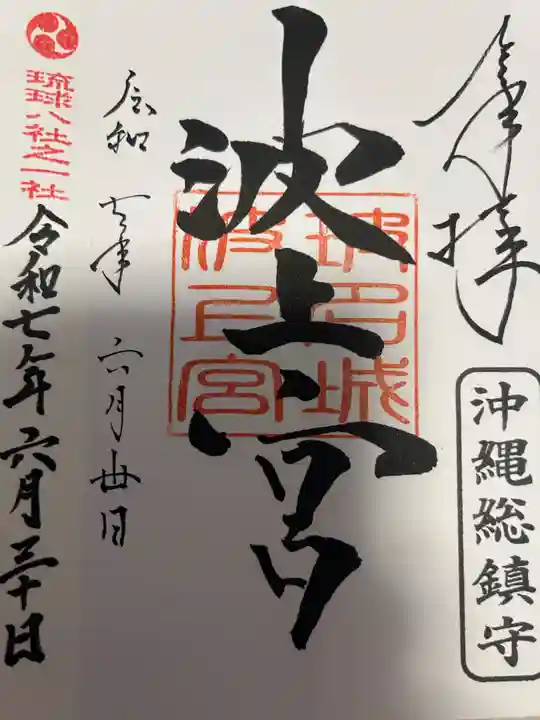 奉拝
沖縄総鎮守
波上宮
波上宮
令和 七年 六月 卅日
琉球八社之一社
令和七年六月三十日